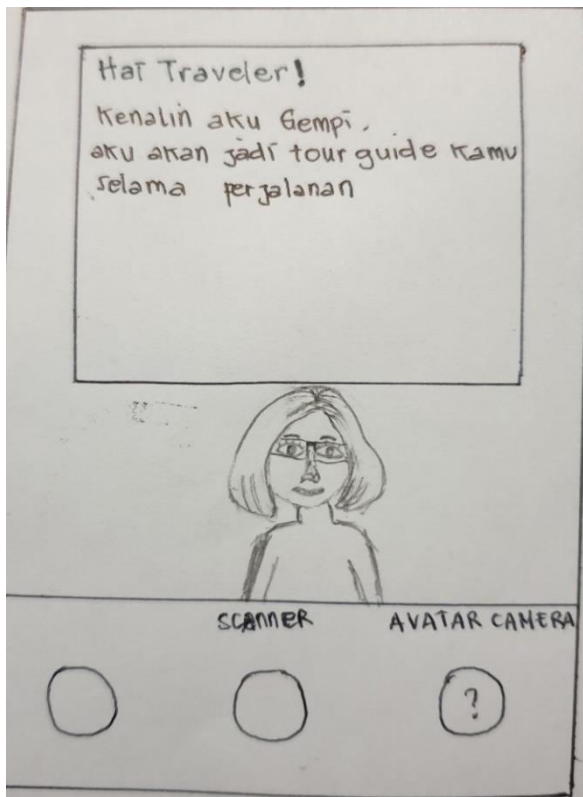 Hai Traveler!
Kenalin aku Gempi.
aku akan jadi tour guide kamu
selama perjalanan
SCANNER
AVATAR CAMERA
?